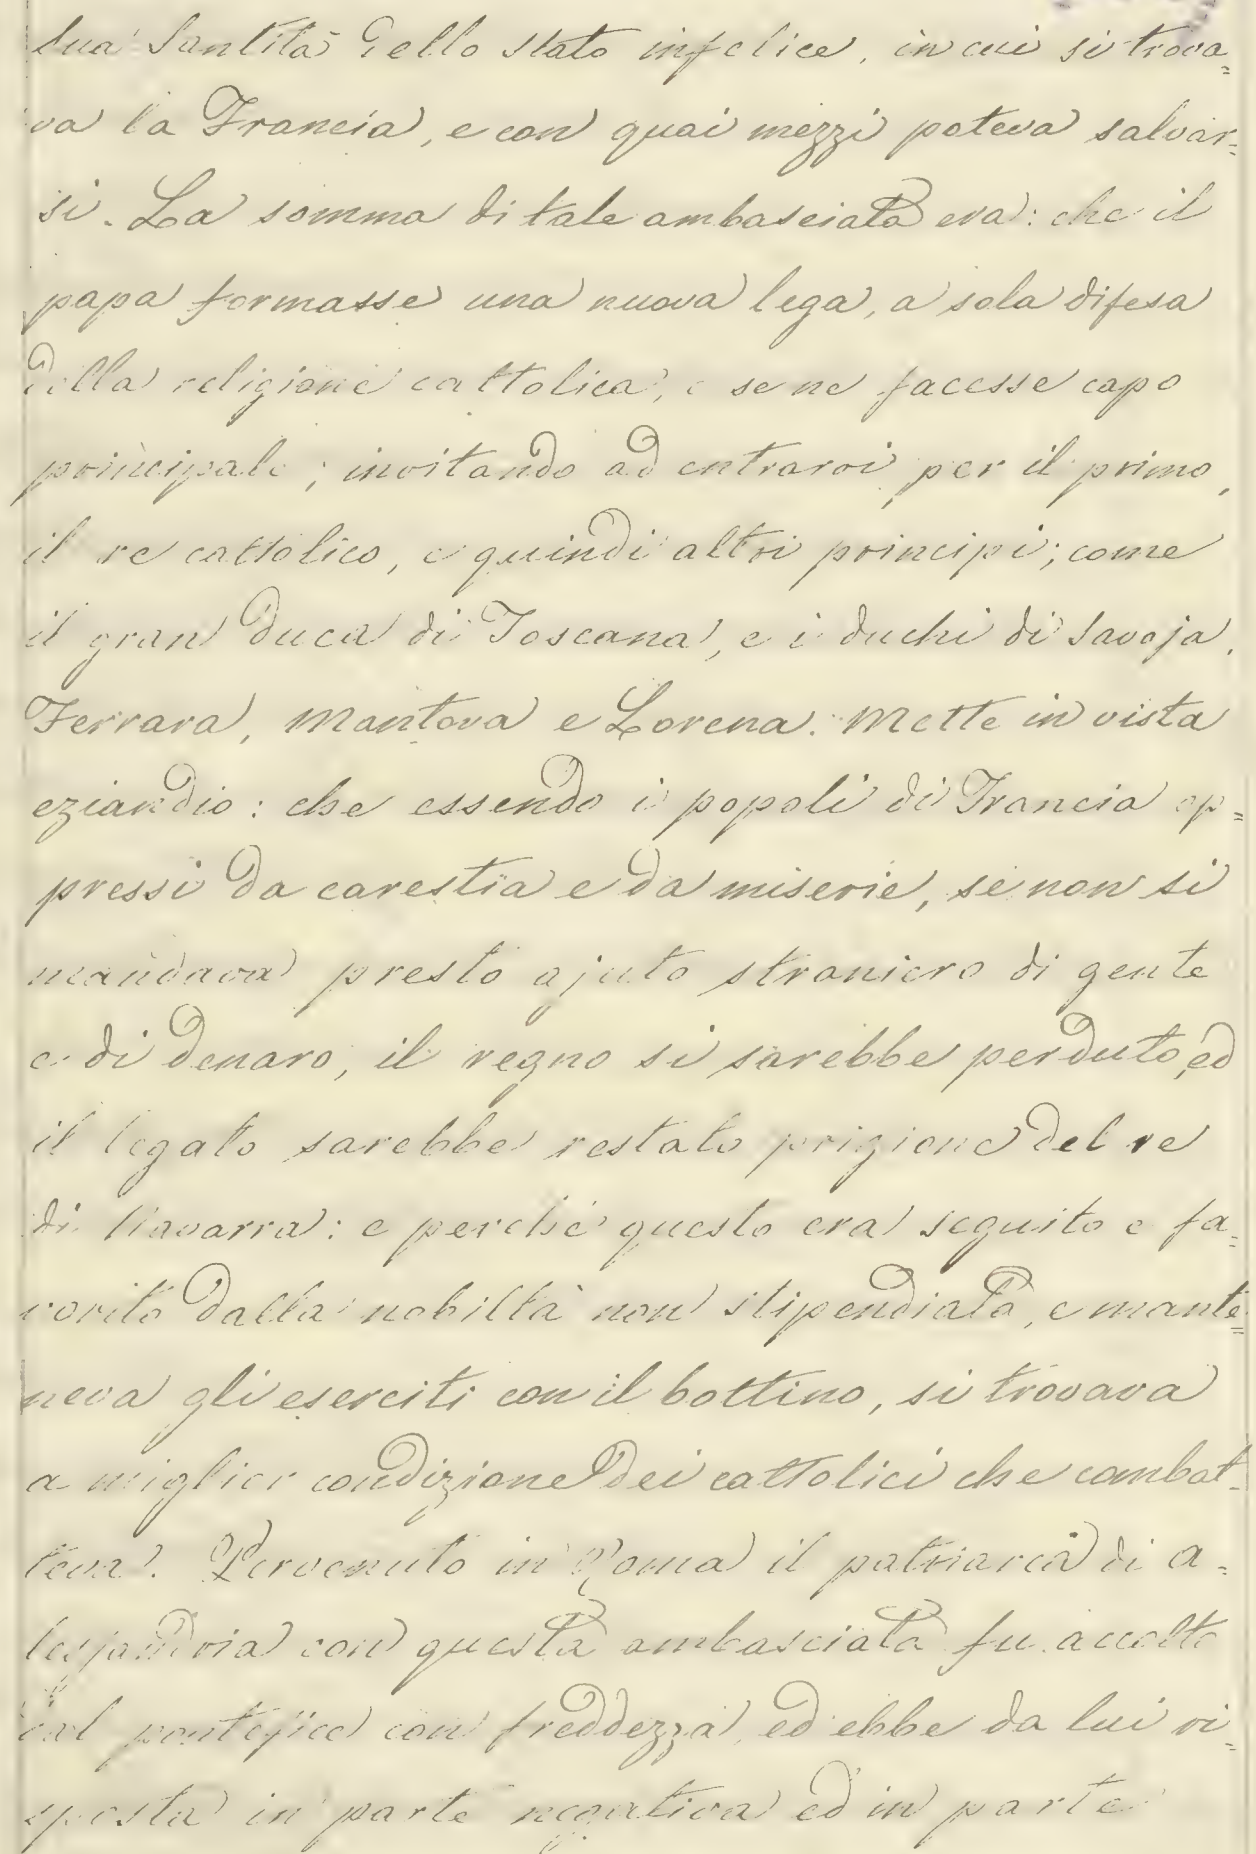 sua Santità dello stato infelice, in cui si trova=
va la Francia, e con quai mezzi poteva salvar=
si. La somma di tale ambasciata era: che il
papa formasse una nuova lega, a sola difesa
della religione cattolica, e se ne facesse capo
principale; invitando ad entrarvi, per il primo,
il re cattolico, e quindi altri principi; come
il gran duca di Toscana, e i duchi di Savoja,
Ferrara, Mantova e Lorena. Mette in vista
eziandio: che essendo i popoli di Francia op=
pressi da carestia e da miserie, se non si
mandava presto ajuto straniero di gente
e di denaro, il regno si sarebbe perduto, ed
il legato sarebbe restato prigione del re
di Navarra: e perchè questo era seguito e fa=
vorito dalla nobiltà non stipendiata, e mante=
neva gli eserciti con il bottino, si trovava
a miglior condizione dei cattolici che combat=
teva. Pervenuto in Roma il patriarca di A=
lessandria con questa ambasciata fu accolto
dal pontefice con freddezza, ed ebbe da lui ri=
sposta in parte negativa ed in parte